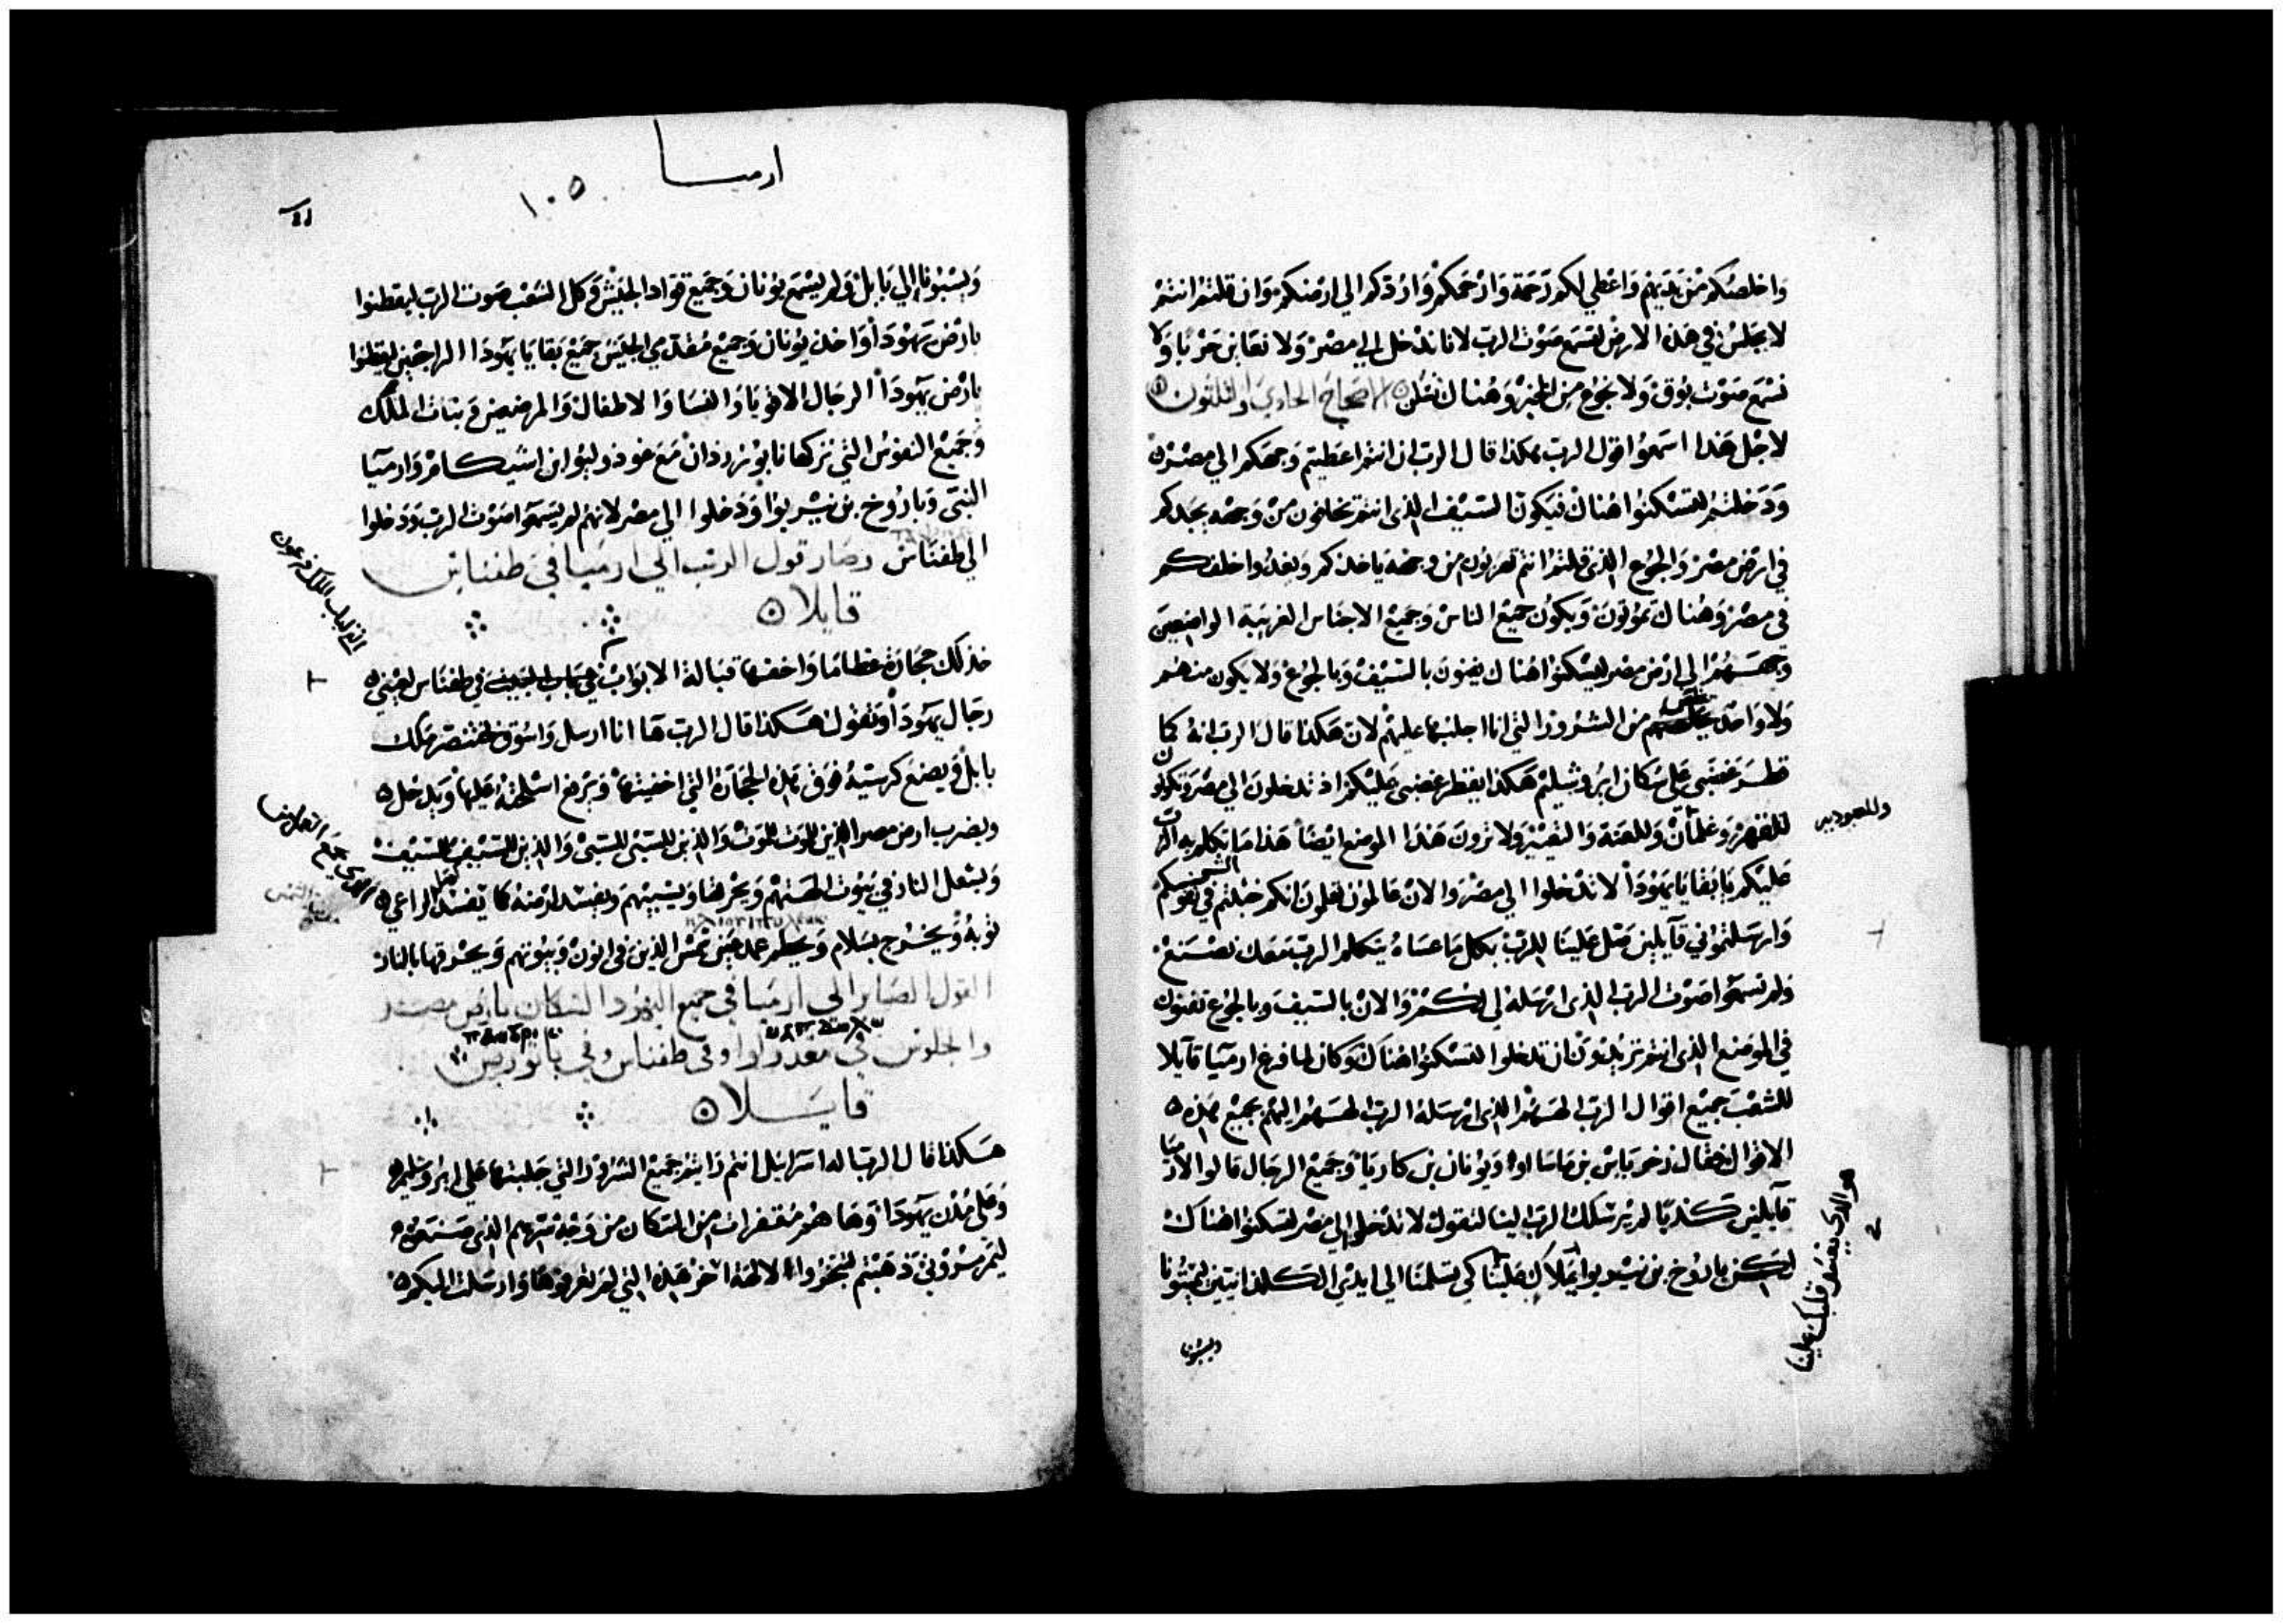 واخلصكم من يديهم واعطي لكم رحمة وارحمكم واردكم الي ارضكم وان قلتم انتم
لا نجلس في هذه الارض لنسمع صوت الرب لاننا ندخل الي مصر ولا نعاين حربا ولا
نسمع صوت بوق ولا نجوع من الخبز وهناك نسكن الاصحاح الحادي والثلثون
لاجل هذا اسمعوا قول الرب هكذا قال الرب ان انتم اعطيتم وجهكم الي مصر
ودخلتم لتسكنوا هناك فيكون السيف الذي انتم تخافون من وجهه يجدكم
في ارض مصر والجوع الذي قلتم انتم تهربون من وجهه ياخذكم ويغدوا خلفكم
في مصر وهناك تموتون ويكون جميع الناس وجميع الاجناس الغريبة الواضعين
وجههم الي ارض مصر ليسكنوا هناك يفنون بالسيف وبالجوع ولا يكون منهم
ولا واحد من الشرور التي انا اجلبها عليهم لان هكذا قال الرب انه كما
قطر غضبي علي سكان ايروشليم هكذا يقطر غضبي عليكم اذ تدخلون الي مصر وتكونوا
وللعنة والتعيير ولا ترون هذا الموضع ايضا هذا ما تكلم به الرب
عليكم يا بقايا يهودا لا تدخلوا الي مصر والان عالمون تعلمون انكم خبثتم في نفوسكم
وارسلتموني قايلين صل علينا للرب بكل ما عساه يتكلم الرب معك نصنع
ولم تسمعوا صوت الرب الذي ارسله اليكم والان بالسيف وبالجوع تفنون
في الموضع الذي انتم تريدون ان تدخلوا لتسكنوا هناك وكان لما فرغ ارميا قايلا
للشعب جميع اقوال الرب الههم الذي ارسله الرب الههم اليهم بجميع هذه
الاقوال فقال ازخرياس بن ماسااو ويونان بن كاريا وجميع الرجال قالوا لارميا
قايلين كذبا لم يرسلك الرب الينا لتقول لا تدخلوا الي مصر لتسكنوا هناك
لكن باروخ بن نيريوا علينا كي تسلمنا الي ايدي الكلدانيين ليميتونا
ويسبونا
هو الذي يعيتر قلبك علينا
ارميا
١٠٥
ويسبونا الي بابل ولم يسمع يونان وجميع قواد الجيش وكل الشعب صوت الرب ليقطنوا
بارض يهودا واخذ يونان وجميع مقدمي الجيش جميع بقايا يهودا الراجعين ليقطنوا
بارض يهودا الرجال الاقويا والنسا والاطفال والمرضعين وبنات الملك
وجميع النفوس التي تركها نابوزردان مع غودوليوا بن اشيكام وارميا
النبي وباروخ بن نيريوا ودخلوا الي مصر لانهم لم يسمعوا صوت الرب ودخلوا
الي طفناس وصار قول الرب الي ارميا في طفناس
قايلا
خذ لك حجارة عظاما واخفها قبالة الابواب في طفناس لعيني
رجال يهودا وتقول هكذا قال الرب ها انا ارسل واسوق بختنصر ملك
بابل ويصنع كرسيه فوق هذه الحجارة التي اخفيتها ويرفع اسلحته عليها ويدخل
ويضرب ارض مصر الذين للموت للموت والذين للسبي للسبي والذين للسيف للسيف
ويشعل النار في بيوت الهتهم ويحرقها ويسبيهم ويفسد ارض مصر كما يفسد الراعي
ثوبه ويخرج بسلام ويحطم عمد عين شمس الذين في اون وبيوتهم ويحرقها بالنار
القول الصاير الي ارميا في جميع اليهود السكان بارض مصر
والجلوس في مغدولوا وفي طفناس وفي باثوريس
قايلا
هكذا قال الرب اله اسرائيل انتم رايتم جميع الشرور التي جلبتها علي ايروشليم
وعلي مدن يهودا وها هم مقفرات من السكان من وجه شرهم الذي صنعوه
ليمرمروني ذهبتم لتبخروا لالهة اخر هذه التي لم تعرفوها وارسلت اليكم